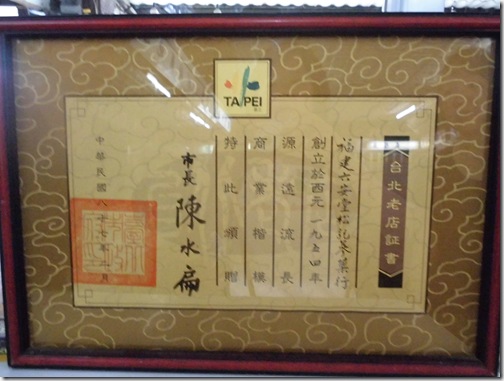 TAIPEI
台北老店証書
福建六安堂 記 行
創立於西元一九五四年
源遠流長
商業楷模
特此頒贈
市長 陳水扁
中華民國八十七年 月